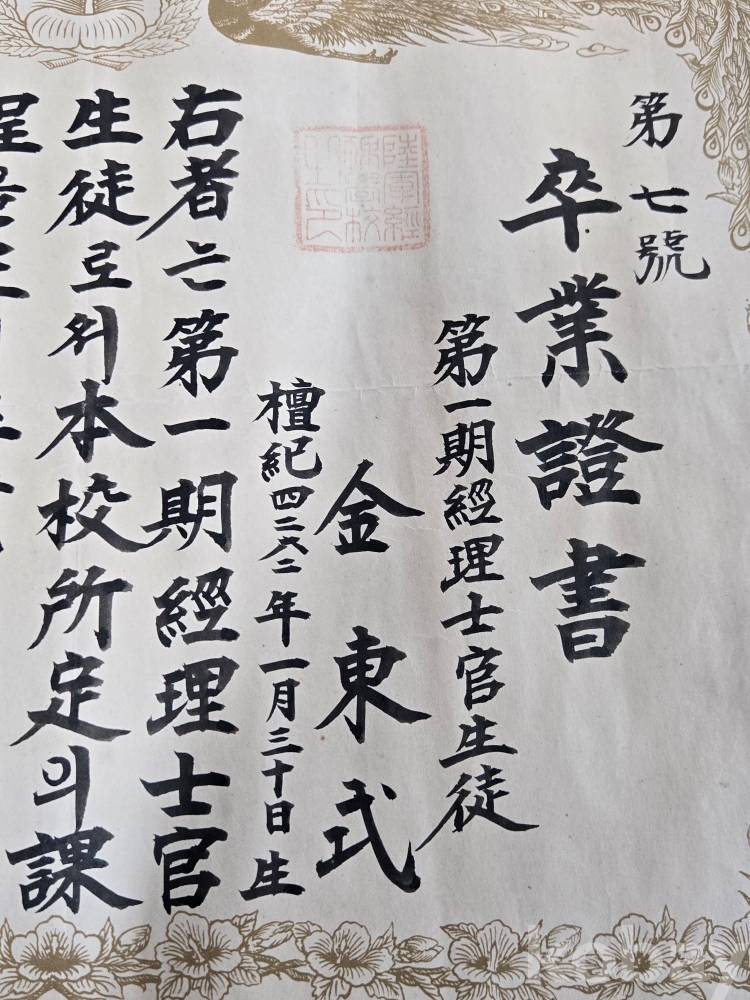 第七號
卒業證書
第一期經理士官生徒
金東式
檀紀四二六二年一月三十日生
右者는第一期經理士官
生徒로서本校所定의課